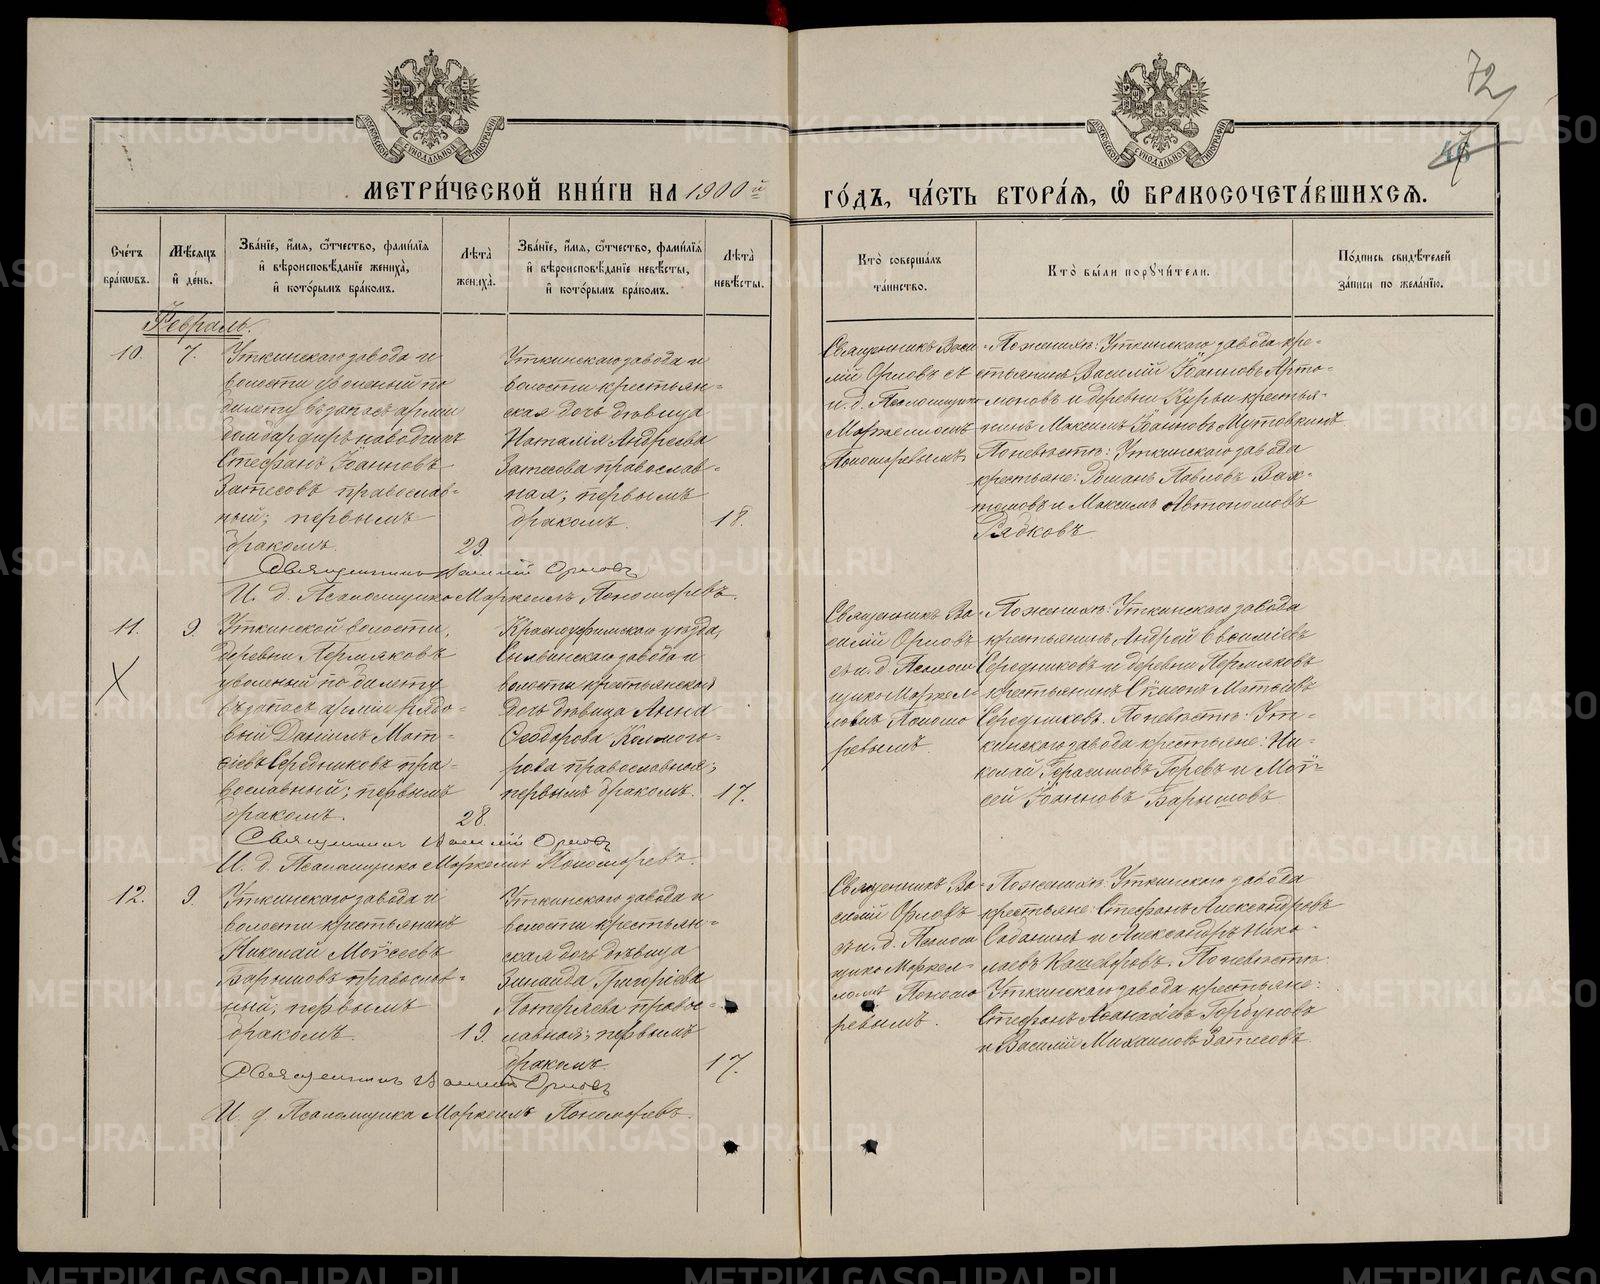 72
МЕТРИ́ЧЕСКОЙ КНИ́ГИ НА 1900й
ГО́ДЪ, ЧА́СТЬ ВТОРА́Я, Ѡ БРАКОСОЧЕТА́ВШИХСЯ.
Сче́тъ бра́кѡвъ.
Мѣ́сяцъ и҆ де́нь.
Зва́нїе, и҆́мѧ, ѻ҆́тчество, фами́лїѧ
и҆ вѣроисповѣ́данїе жениха̀,
и҆ кото́рымъ бра́комъ.
Лѣ́та жениха̀.
Зва́нїе, и҆́мѧ, ѻ҆́тчество, фами́лїѧ
и҆ вѣроисповѣ́данїе невѣ́сты,
и҆ кото́рымъ бра́комъ.
Лѣ́та невѣ́сты.
Кто̀ соверша́лъ
та́инство.
Кто̀ бы́ли порꙋчи́тели.
По́дпись свидѣ́телей
за́писи по жела́нїю.
Февраль.
10.
7.
Уткинскаго завода и
волости уволенный по
билету въ запасъ арміи
бомбардиръ наводчикъ
Стефанъ Іоанновъ
Затесовъ православ-
ный; первымъ
бракомъ.
29.
Уткинскаго завода и
волости крестьян-
ская дочь дѣвица
Наталія Андреева
Затесова православ-
ная; первымъ
бракомъ.
18.
Священникъ Васи-
лій Орловъ съ
и. д. Псаломщика
Маркелломъ
Пономаревымъ
По женихѣ: Уткинскаго завода кре-
стьянинъ Василій Іоанновъ Арта-
моновъ и деревни Курьи крестья-
нинъ Максимъ Іоанновъ Мутовкинъ.
По невѣстѣ: Уткинскаго завода
крестьяне: Романъ Павловъ Вах-
и Максимъ Автономовъ
Рябковъ
Священникъ Василій Орловъ
И. д. Псаломщика Маркеллъ Пономаревъ.
11.
9.
Уткинской волости,
деревни Пермяковъ
уволенный по билету
въ запасъ арміи рядо-
вый Даніилъ Мат-
ѳіевъ Середниковъ пра-
вославный; первымъ
бракомъ.
28.
Красноуфимскаго уѣзда,
Сылвинскаго завода и
волости крестьянская
дочь дѣвица Анна
Ѳеодорова Колмого-
рова православная;
первымъ бракомъ.
17.
Священникъ Ва-
силій Орловъ
съ и. д. Псалом
щика Маркел-
ломъ Пономо
ревымъ.
По женихѣ: Уткинскаго завода
крестьянинъ Андрей Евѳиміевъ
Середниковъ и деревни Пермяковъ
крестьянинъ Сѵмеонъ Матѳіевъ
Середниковъ. По невѣстѣ: Ут-
кинскаго завода крестьяне: Ни-
колай Герасимовъ Горевъ и Мои-
сей Іоанновъ Барышовъ
Священникъ Василій Орловъ
И. д. Псаломщика Маркеллъ Пономаревъ.
12.
9.
Уткинскаго завода и
волости крестьянинъ
Николай Моисеевъ
Барышовъ православ-
ный; первымъ
бракомъ.
19.
Уткинскаго завода и
волости крестьян-
ская дочь дѣвица
Зинаида Григоріева
Потеряева правос-
лавная; первымъ
бракомъ.
17.
Священникъ Ва-
силій Орловъ
съ и. д. Псалом
щика Маркел-
ломъ Пономо
ревымъ.
По женихѣ: Уткинскаго завода
крестьяне: Стефанъ Александровъ
Сабанинъ и Александръ Нико-
лаевъ Кашеваровъ. По невѣстѣ:
Уткинскаго завода крестьяне:
Стефанъ Аѳанасіевъ Горбуновъ
и Василій Михаиловъ Затесовъ.
Священникъ Василій Орловъ
И. д. Псаломщика Маркеллъ Пономаревъ.